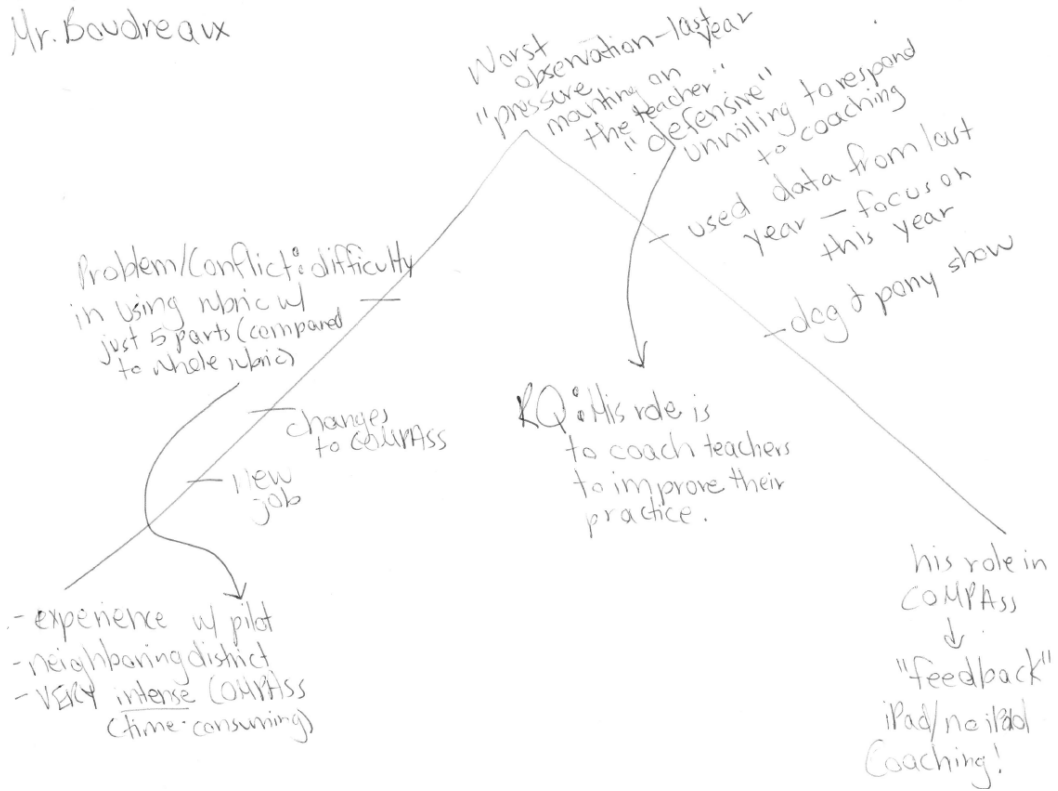 Mr. Boudreaux
Worst
observation - last
year
"pressure
mounting on
the teacher"
"defensive"
unwilling to respond
to coaching
- used data from last
year - focus on
this year
- dog & pony show
Problem/Conflict: difficulty
in using rubric w/
just 5 parts (compared
to whole rubric)
changes
to COMPASS
- new
job
RQ: His role is
to coach teachers
to improve their
practice.
- experience w/ pilot
- neighboring district
- VERY intense COMPASS
(time-consuming)
his role in
COMPASS
↓
"feedback"
iPad/no iPad
Coaching!